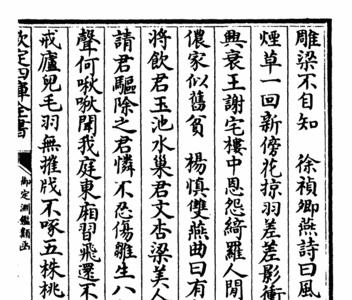 雕梁不自知 徐禎卿燕詩曰風
煙草一回新傍花掠羽差差影衝
興衰王謝宅樓中恩怨綺羅人閒
儂家似舊貧 楊慎雙燕曲曰有
將飲君玉池水巢君文杏梁美人
請君驅除之君憐不忍傷雛生八
聲何啾啾聞我庭東廂習飛還不
戒廬兒毛羽無摧戕不啄五株桃
欽定四庫全書
御定淵鑑類函